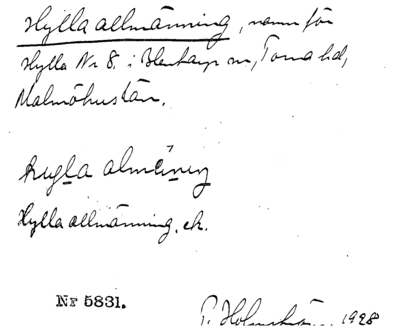 Hylla allmänning, namn för
Hylla Nr 8 i Blentarp sn, Torna hd,
Malmöhus län.
allmäning
Hylla allmänning, ek.
Nr 5831.
1928